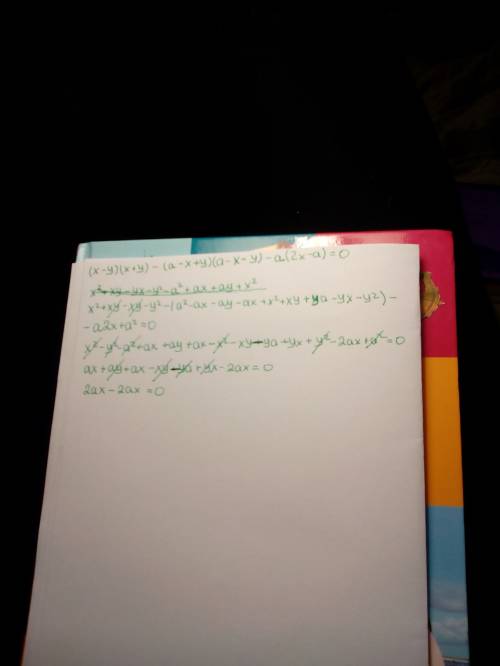 (x-y)(x+y) - (a-x+y)(a-x-y) - a(2x-a)=0
x²+xy-yx-y²-a²+ax+ay+x²
x²+xy-xy-y²-(a²-ax-ay-ax+x²+xy+ya-yx-y2)-
-a2x+a²=0
x²-y²-a²+ax+ay+ax-x²-xy-ya+yx+y²-2ax+a²=0
ax+ay+ax-xy-ya+yx-2ax=0
2ax-2ax=0